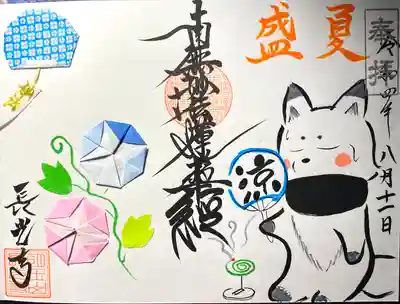 奉拝
令和四年八月十一日
盛夏
南無妙法蓮華経
涼
長光寺